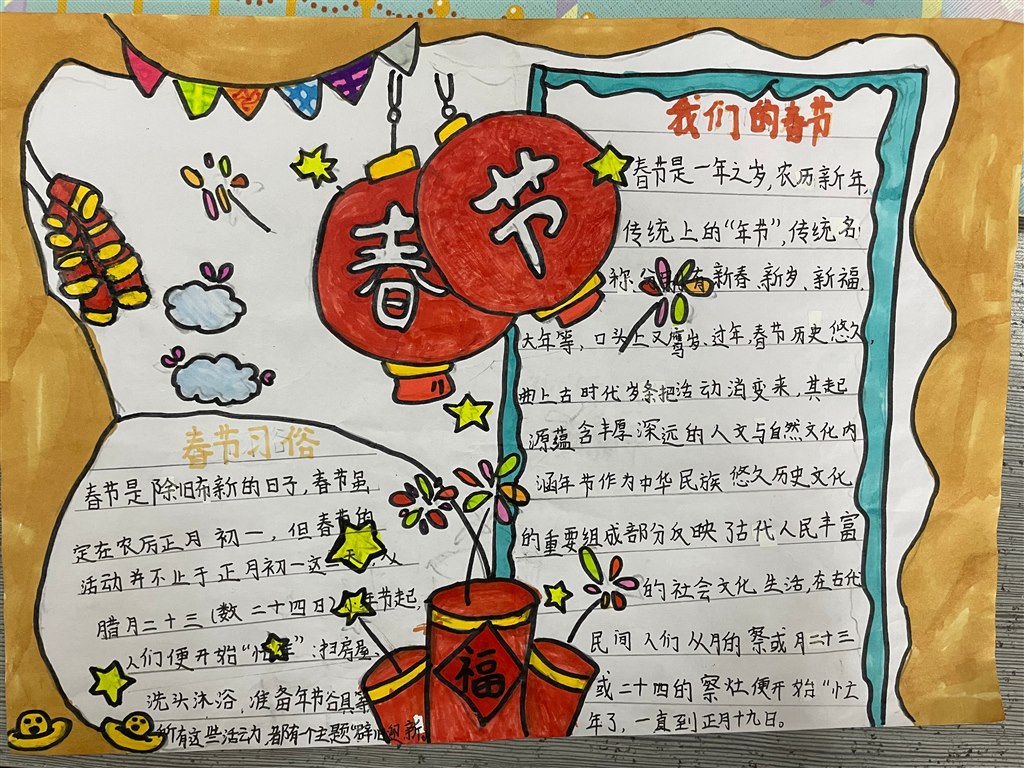 春节
我们的春节
春节是一年之岁,农历新年,
传统上的“年节”,传统名
称 有新春、新岁、新福、
大年等,口头上又 岁、过年,春节历史悠久,
曲上古时代岁条把活动消变来,其起
源蕴含丰厚深远的人文与自然文化内
涵年节作为中华民族悠久历史文化
的重要组成部分反映了古代人民丰富
的社会文化生活,在古代
民间人们从月的祭或月二十三
或二十四的祭灶便开始“忙
年了,一直到正月十九日。
春节习俗
春节是除旧布新的日子,春节虽
定在农历正月初一,但春节的
活动并不止于正月初一这一天,从
腊月二十三(数二十四日)小年节起,
人们便开始“忙年”:扫房屋、
洗头沐浴,准备年节 具等
所有这些活动,都有个主题“辞旧迎新
福